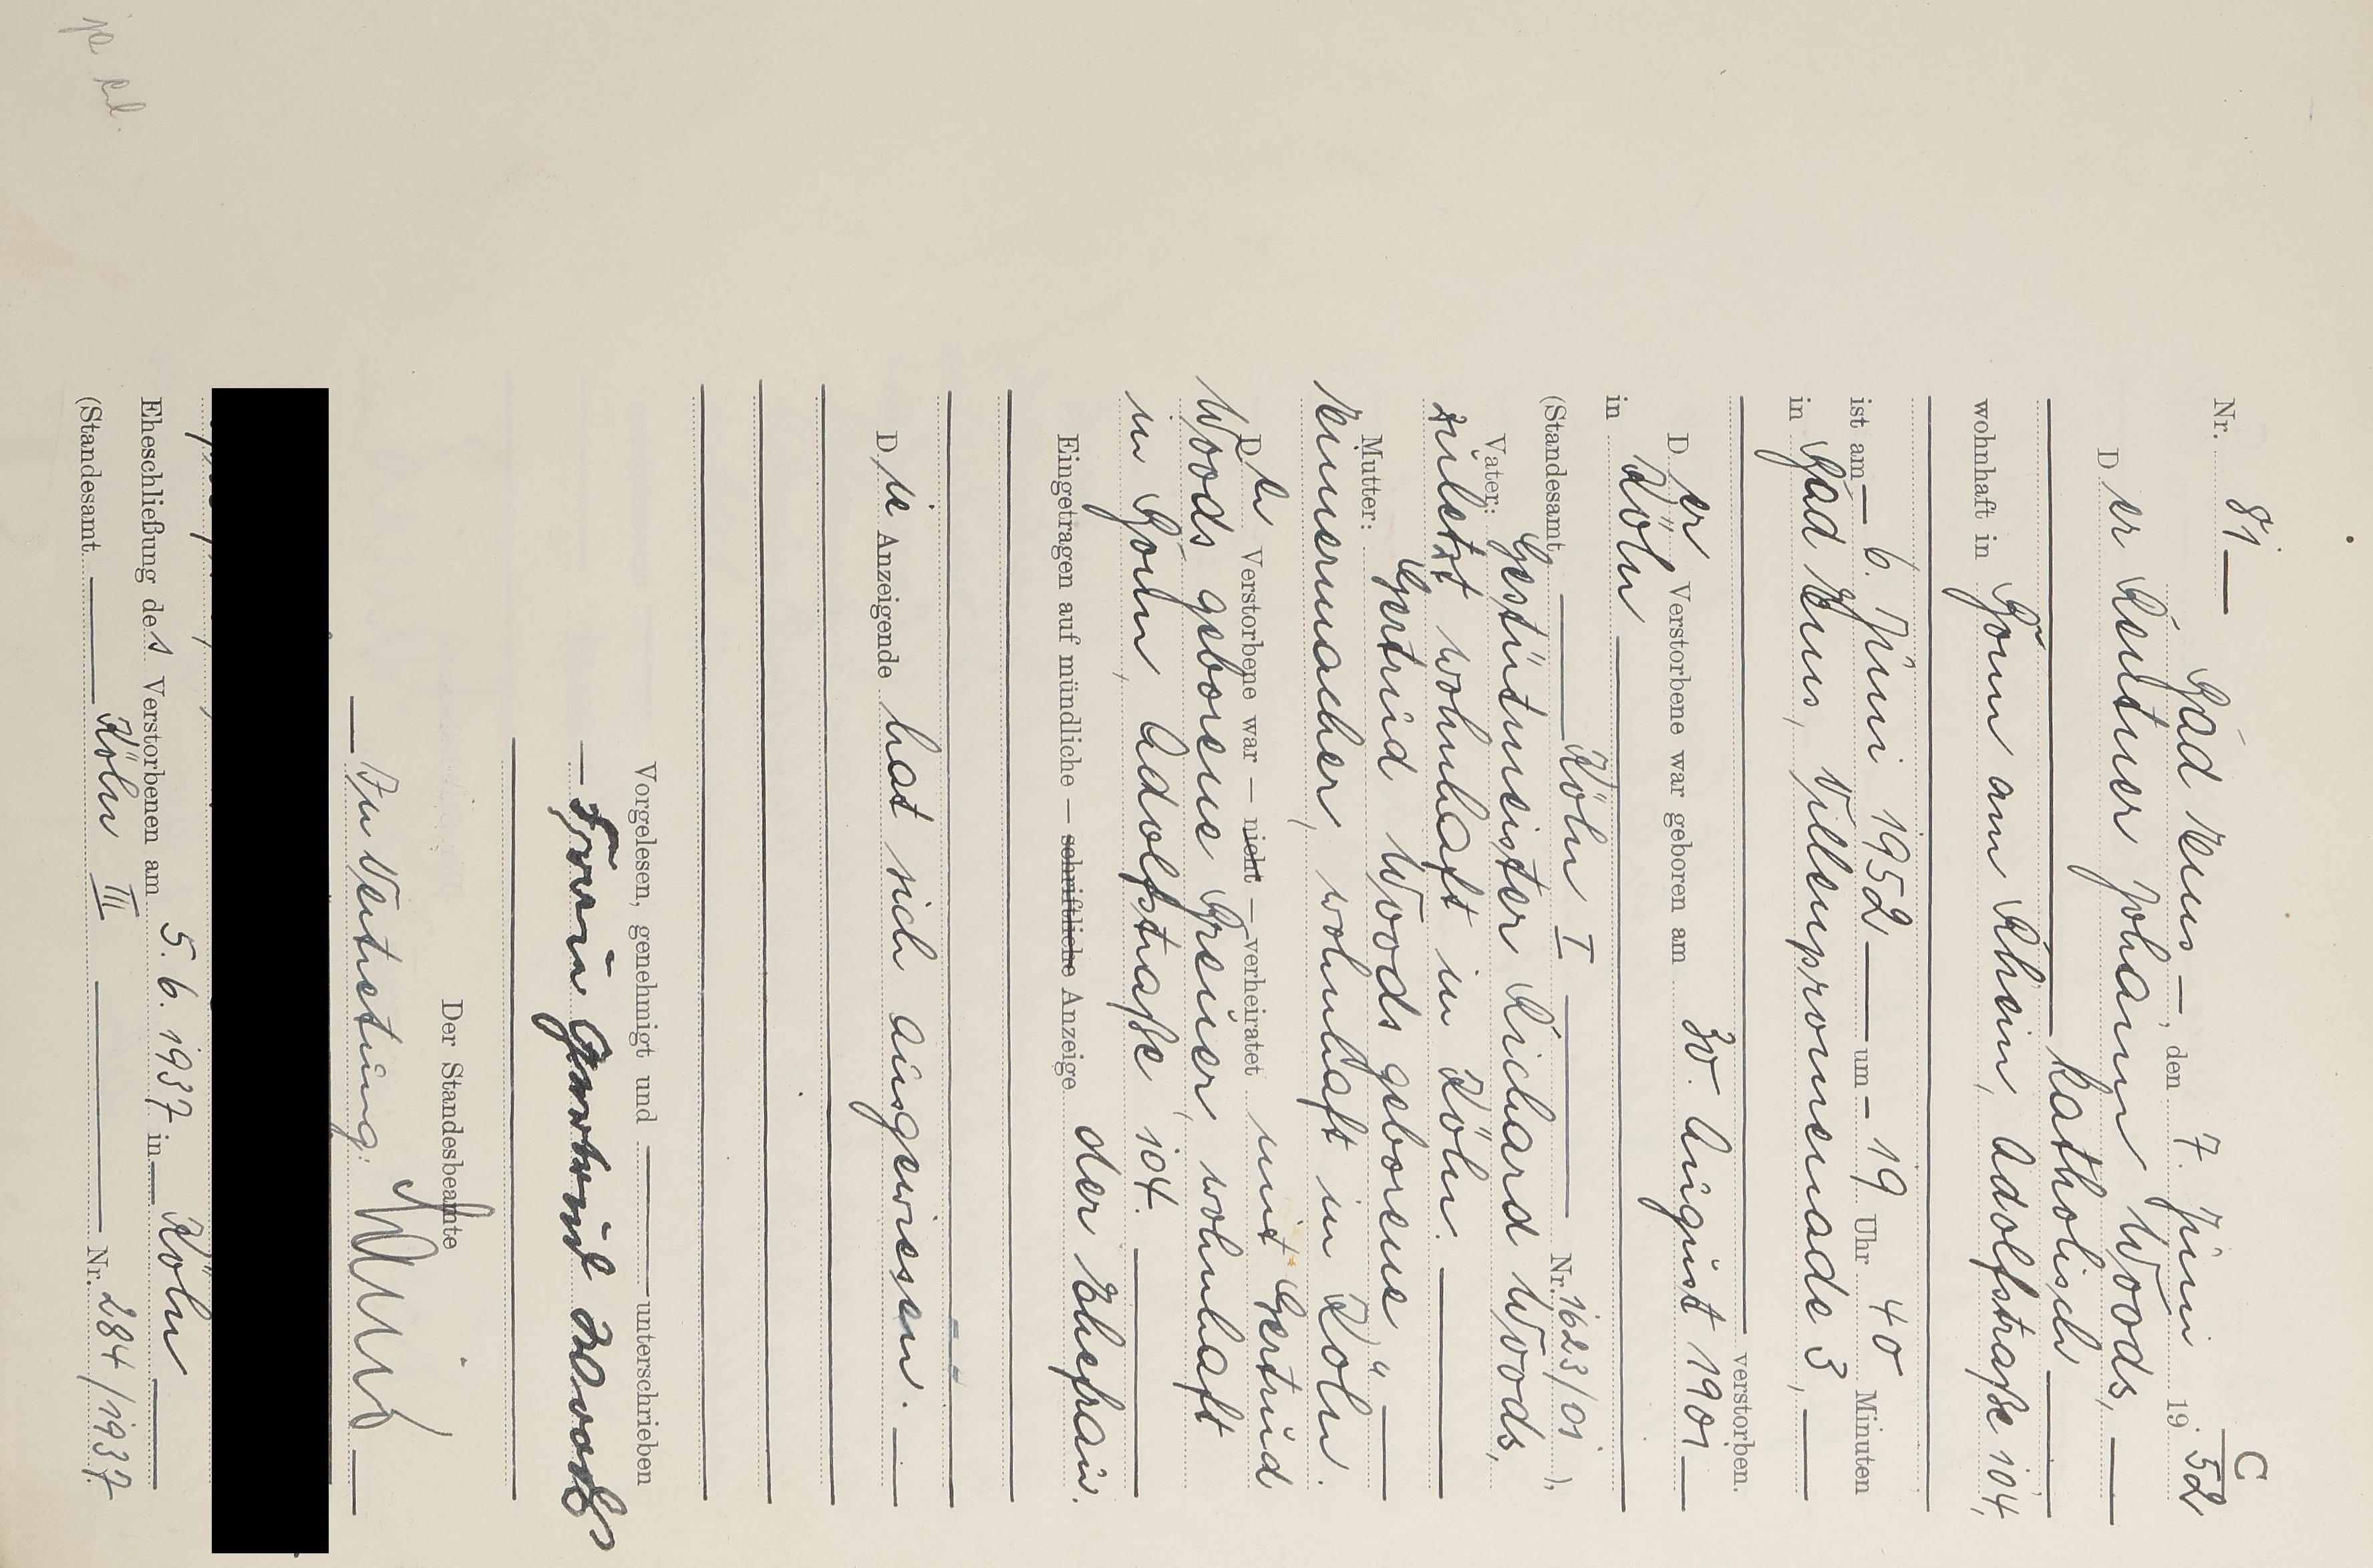 C
Nr. 81
Bad Ems, den 7. Juni 1952
Der Rentner Johann Woods,
katholisch
wohnhaft in Bonn am Rhein, Adolfstraße 104,
ist am 6. Juni 1952 um 19 Uhr 40 Minuten
in Bad Ems, Villenpromenade 3,
verstorben.
Der Verstorbene war geboren am 30. August 1901
in Köln
(Standesamt Köln I Nr. 1623/01),
Vater: Gestütmeister Richard Woods,
zuletzt wohnhaft in Köln.
Mutter: Gertrud Woods geborene
Kennermacher, wohnhaft in Köln.
Der Verstorbene war — nicht — verheiratet mit Gertrud
Woods geborene Greuer, wohnhaft
in Bonn, Adolfstraße 104.
Eingetragen auf mündliche — schriftliche Anzeige der Ehefrau.
Die Anzeigende hat sich ausgewiesen.
Vorgelesen, genehmigt und unterschrieben
Frau Gertrud Woods
Der Standesbeamte
In Vertretung:
Eheschließung des Verstorbenen am 5.6.1937 in Köln
(Standesamt Köln III Nr. 284/1937